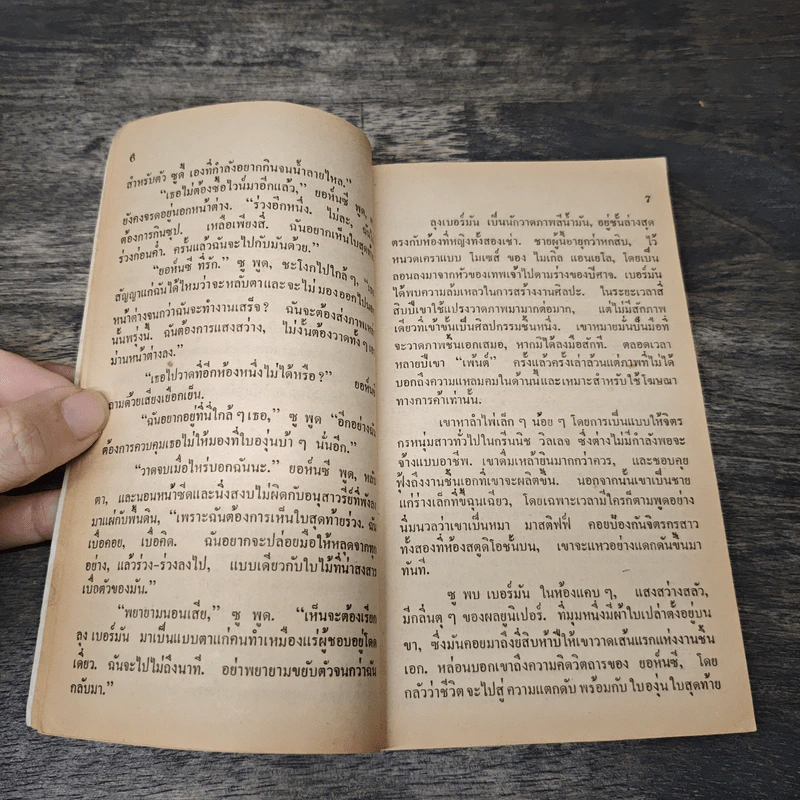 6
สำหรับตัว ซูดี้ เองที่กำลังอยากกินจนน้ำลายไหล."
"เธอไม่ต้องซื้อไวน์มาอีกแล้ว," ยอห์นซี พูด,
ยังคงจรดอยู่นอกหน้าต่าง. "ร่วงอีกหนึ่ง. ไม่ละ,
ต้องการกินซุป. เหลือเพียงสี่. ฉันอยากเห็นใบสุดท้าย
ร่วงก่อนค่ำ. ครั้นแล้วฉันจะไปกับมันด้วย."
"ยอห์นซี ที่รัก." ซู พูด, ชะโงกไปใกล้ ๆ,
สัญญาแก่ฉันได้ไหมว่าจะหลับตาและจะไม่ มองออกไปนอก
หน้าต่างจนกว่าฉันจะทำงานเสร็จ? ฉันจะต้องส่งภาพ
นั้นพรุ่งนี้. ฉันต้องการแสงสว่าง, ไม่งั้นต้องวาดทั้ง ๆ
ม่านหน้าต่างลง."
"เธอไปวาดที่อีกห้องหนึ่งไม่ได้หรือ?"
ถามด้วยเสียงเยือกเย็น.
"ฉันอยากอยู่ที่นี่ใกล้ ๆ เธอ," ซู พูด "อีกอย่าง
ต้องการควบคุมเธอไม่ให้มองที่ใบองุ่นบ้า ๆ นั่นอีก."
"วาดจบเมื่อไหร่บอกฉันนะ." ยอห์นซี พูด,
ตา, และนอนหน้าซีดและนิ่งสงบไม่ผิดกับอนุสาวรีย์ที่พังลง
มาแผ่กับพื้นดิน, "เพราะฉันต้องการเห็นใบสุดท้ายร่วง.
เบื่อคอย, เบื่อคิด. ฉันอยากจะปล่อยมือให้หลุดจากทุก
อย่าง, แล้วร่วง-ร่วงลงไป, แบบเดียวกับใบไม้ที่น่าสงสาร
เบื่อตัวของมัน."
"พยายามนอนเสีย," ซู พูด. "เห็นจะต้องเรียก
ลุง เบอร์มัน มาเป็นแบบตาแก่คนทำเหมืองแร่ผู้ชอบอยู่โดด
เดี่ยว. ฉันจะไปไม่ถึงนาที. อย่าพยายามขยับตัวจนกว่าฉัน
กลับมา."
7
ลุงเบอร์มัน เป็นนักวาดภาพสีน้ำมัน, อยู่ชั้นล่างสุด
ตรงกับห้องที่หญิงทั้งสองเช่า. ชายผู้นี้อายุกว่าหกสิบ, ไว้
หนวดเคราแบบ โมเซส์ ของ ไมเกิล แอนเยโล, โดยเป็น
ลอนลงมาจากหัวของเทพเจ้าไปตามร่างของปีศาจ. เบอร์มัน
ได้พบความล้มเหลวในการสร้างงานศิลปะ. ในระยะเวลาสี่
สิบปีเขาใช้แปรงวาดภาพมามากต่อมาก, แต่ไม่มีสักภาพ
เดียวที่เข้าขั้นเป็นศิลปกรรมชั้นหนึ่ง. เขาหมายมั่นปั้นมือที่
จะวาดภาพชิ้นเอกเสมอ, หากมิได้ลงมือสักที. ตลอดเวลา
หลายปีเขา "เพ้นต์" ครั้งแล้วครั้งเล่าล้วนแต่ภาพที่ไม่ได้
บอกถึงความแหลมคมในด้านนี้และเหมาะสำหรับใช้โฆษณา
ทางการค้าเท่านั้น.
เขาหาลำไพ่เล็ก ๆ น้อย ๆ โดยการเป็นแบบให้จิตร
กรหนุ่มสาวทั่วไปในกรีนนิช วิลเลจ ซึ่งต่างไม่มีกำลังพอจะ
จ้างแบบอาชีพ. เขาดื่มเหล้ายินมากกว่าควร, และชอบคุย
ฟุ้งถึงงานชิ้นเอกที่เขาจะผลิตขึ้น. นอกจากนั้นเขาเป็นชาย
แก่ร่างเล็กที่ขี้ฉุนเฉียว, โดยเฉพาะเวลามีใครก็ตามพูดอย่าง
นิ่มนวลว่าเขาเป็นหมา มาสติฟฟ์ คอยป้องกันจิตรกรสาว
ทั้งสองที่ห้องสตูดิโอชั้นบน, เขาจะแหวอย่างแดกดันขึ้นมา
ทันที.
ซู พบ เบอร์มัน ในห้องแคบ ๆ, แสงสว่างสลัว,
มีกลิ่นตุ ๆ ของผลยูนิเปอร์. ที่มุมหนึ่งมีผ้าใบเปล่าตั้งอยู่บน
ขา, ซึ่งมันคอยมาถึงยี่สิบห้าปีให้เขาวาดเส้นแรกแห่งงานชิ้น
เอก. หล่อนบอกเขาถึงความคิดวิตถารของ ยอห์นซี, โดย
กลัวว่าชีวิต จะไปสู่ ความแตกดับ พร้อมกับ ใบองุ่น ใบสุดท้าย